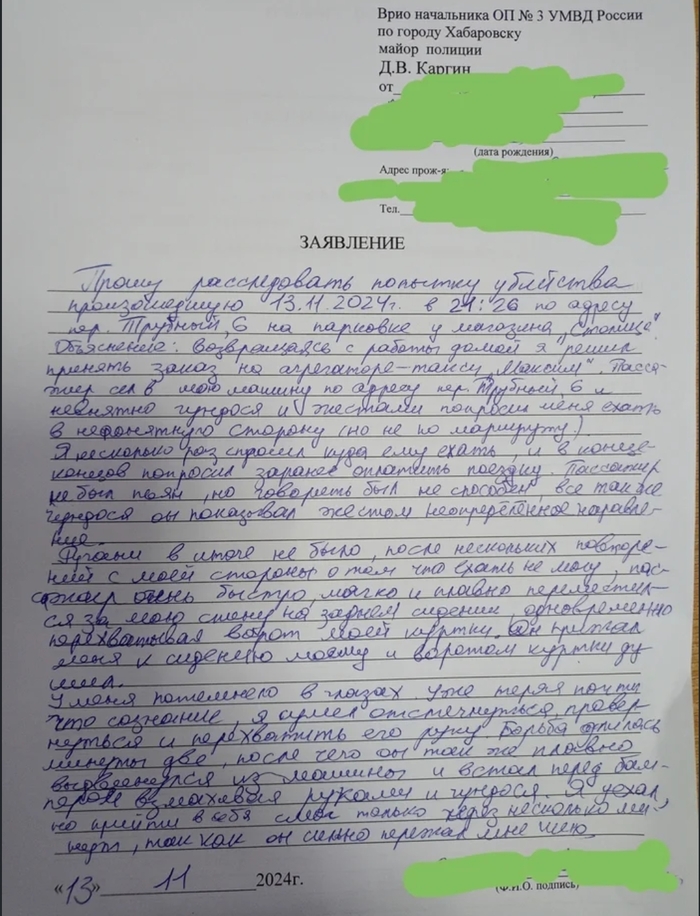 Врио начальника ОП № 3 УМВД России
по городу Хабаровску
майор полиции
Д.В. Каргин
от
(дата рождения)
Адрес прож-я:
Тел.
ЗАЯВЛЕНИЕ
Прошу расследовать попытку убийства
произошедшую 13.11.2024г. в 21:26 по адресу
пер. Трубный, 6 на парковке у магазина „Столица"
Объяснение: Возвращаясь с работы домой я решил
принять заказ на агрегаторе-такси „Максим". Пасса-
жир сел в мою машину по адресу пер. Трубный 6 и
невнятно гундося и жестами попросил меня ехать
в непонятную сторону (но не по маршруту.)
Я несколько раз спросил куда ему ехать, и в конце-
концов попросил заранее оплатить поездку. Пассажир
не был пьян, но говорить был не способен, все так же
гундося он показывал жестом неопределённое направле-
ние.
Ругани в итоге не было, после нескольких повторе-
ний с моей стороны о том что ехать не могу, пас-
сажир очень быстро, мягко и плавно переместил-
ся за мою спину на заднем сидении, одновременно
перехватывая ворот моей куртки. Он прижал
меня к сидению моему и воротом куртки ду
шил.
У меня потемнело в глазах. Уже теряя почти
что сознание, я сумел отстегнуться, провер-
нуться и перехватить его руку. Борьба длилась
минуты две, после чего он так же плавно
выдвинулся из машины и встал перед бам-
пером взмахивая руками и гундося. Я уехал,
но прийти в себя смог только через несколько ми-
нут, так как он сильно пережал мне шею
«13» 11 2024г.
(Ф.И.О. подпись)